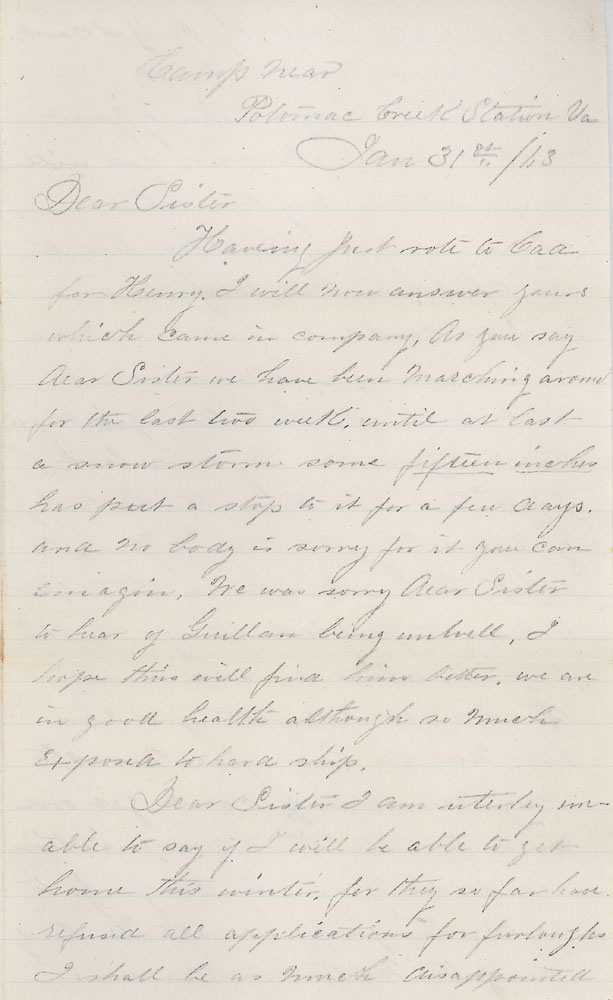 Camp near
Potomac Creek Station Va
Jan 31st /63
Dear Sister
Haveing Just rote to Caa
for Henry. I will now answer yours
which came in company, As you say
dear Sister we have been marching around
for the last two week, until at last
a snow storm some fifteen inches
has put a stop to it for a few days.
and no body is sorry for it you can
emagin, We was sorry dear Sister
to hear of being unwell, I
hope this will find him better, we are
in good health although so much
Exposed to hard ship,
Dear Sister I am uterley un-
able to say if I will be able to get
home this winter, for they so far have
refused all applications for furloughs
I shall be as much disappointed